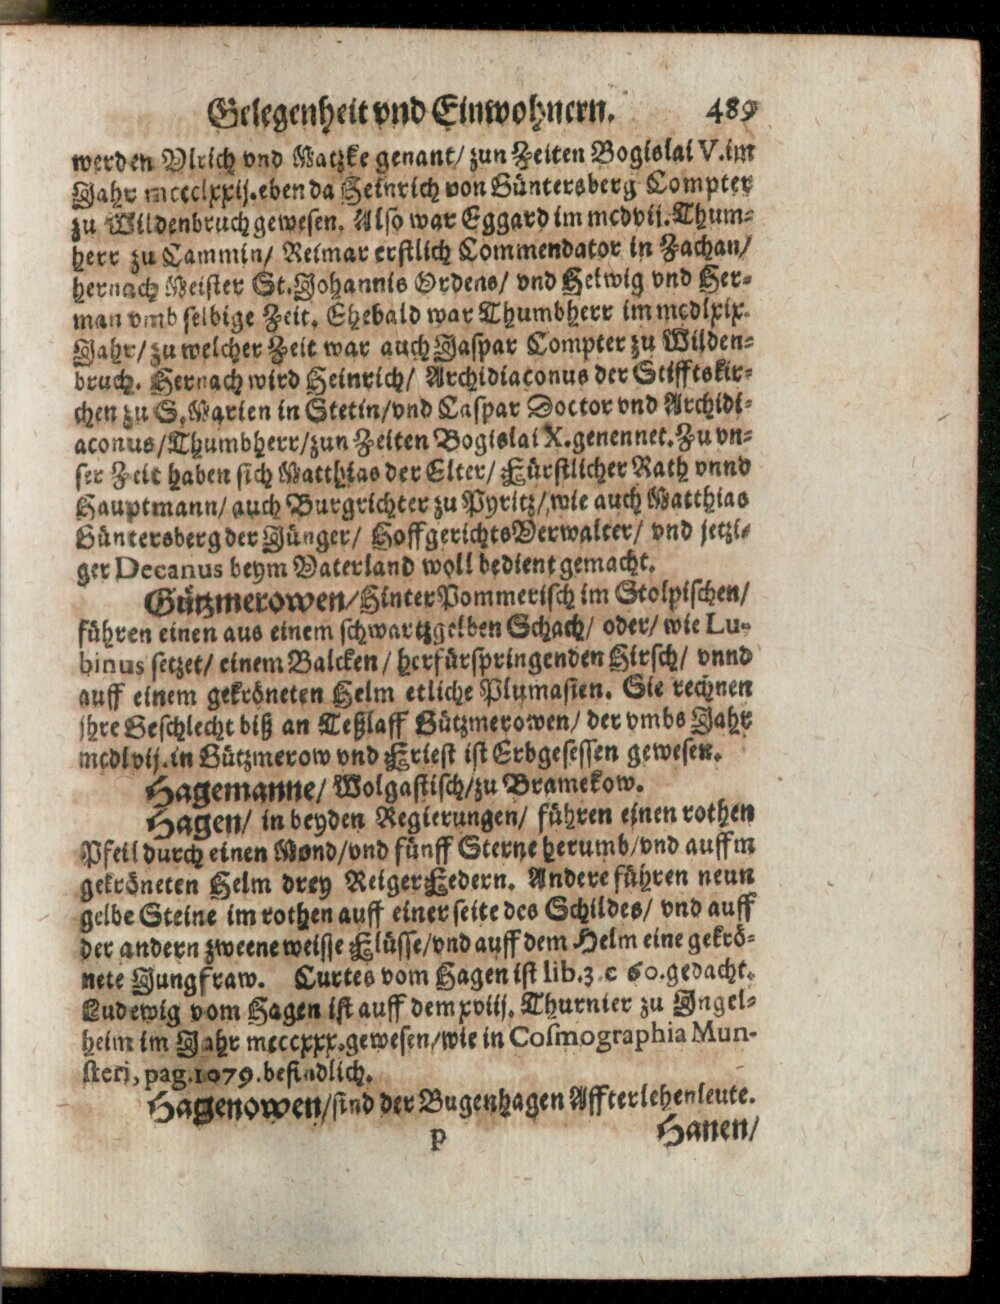 Gelegenheit vnd Einwohnern. 489
werden Vlrich vnd Matzke genant/ zun Zeiten Bogislai V. im
Jahr mccclxxij. eben da Heinrich von Güntersberg Compter
zu Wildenbruch gewesen. Also war Eggard im mcdvij. Thum-
herr zu Cammin/ Reimar erstlich Commendator in Zachan/
hernach Meister St. Johannis Ordens/ vnd Helwig vnd Her-
man vmb selbige Zeit. Ehebald war Thumbherr im mcdlxix.
Jahr/ zu welcher Zeit war auch Jaspar Compter zu Wilden-
bruch. Hernach wird Heinrich/ Archidiaconus der Stifftskir-
chen zu S. Marien in Stetin/ vnd Caspar Doctor vnd Archidi-
aconus/ Thumbherr/ zun Zeiten Bogislai X. genennet. Zu vn-
ser Zeit haben sich Matthias der Elter/ Fürstlicher Rath vnnd
Hauptmann/ auch Burgrichter zu Pyritz/ wie auch Matthias
Güntersberg der Jünger/ HoffgerichtsVerwalter/ vnd jetzi-
ger Decanus beym Vaterland woll bedient gemacht.
Gützmerowen/ HinterPommerisch im Stolpischen/
führen einen aus einem schwartzgelben Schach/ oder/ wie Lu-
binus setzet/ einem Balcken/ herfürspringenden Hirsch/ vnnd
auff einem gekröneten Helm etliche Plumasien. Sie rechnen
jhre Geschlecht biß an Teßlaff Gützmerowen/ der vmbs Jahr
mcdlvij. in Gützmerow vnd Friest ist Erbgesessen gewesen.
Hagemanne/ Wolgastisch/ zu Bramekow.
Hagen/ in beyden Regierungen/ führen einen rothen
Pfeil durch einen Mond/ vnd fünff Sterne herumb/ vnd auffm
gekröneten Helm drey ReigerFedern. Andere führen neun
gelbe Steine im rothen auff einer seite des Schildes/ vnd auff
der andern zweene weisse Flüsse/ vnd auff dem Helm eine gekrö-
nete Jungfraw. Curtes vom Hagen ist lib. 3. c 60. gedacht.
Ludewig vom Hagen ist auff dem xviij. Thurnier zu Ingel-
heim im Jahr mcccxxx. gewesen/ wie in Cosmographia Mun-
steri, pag. 1079. befindlich.
Hagenowen/ sind der Bugenhagen Affterlehenleute.
P Hanen/